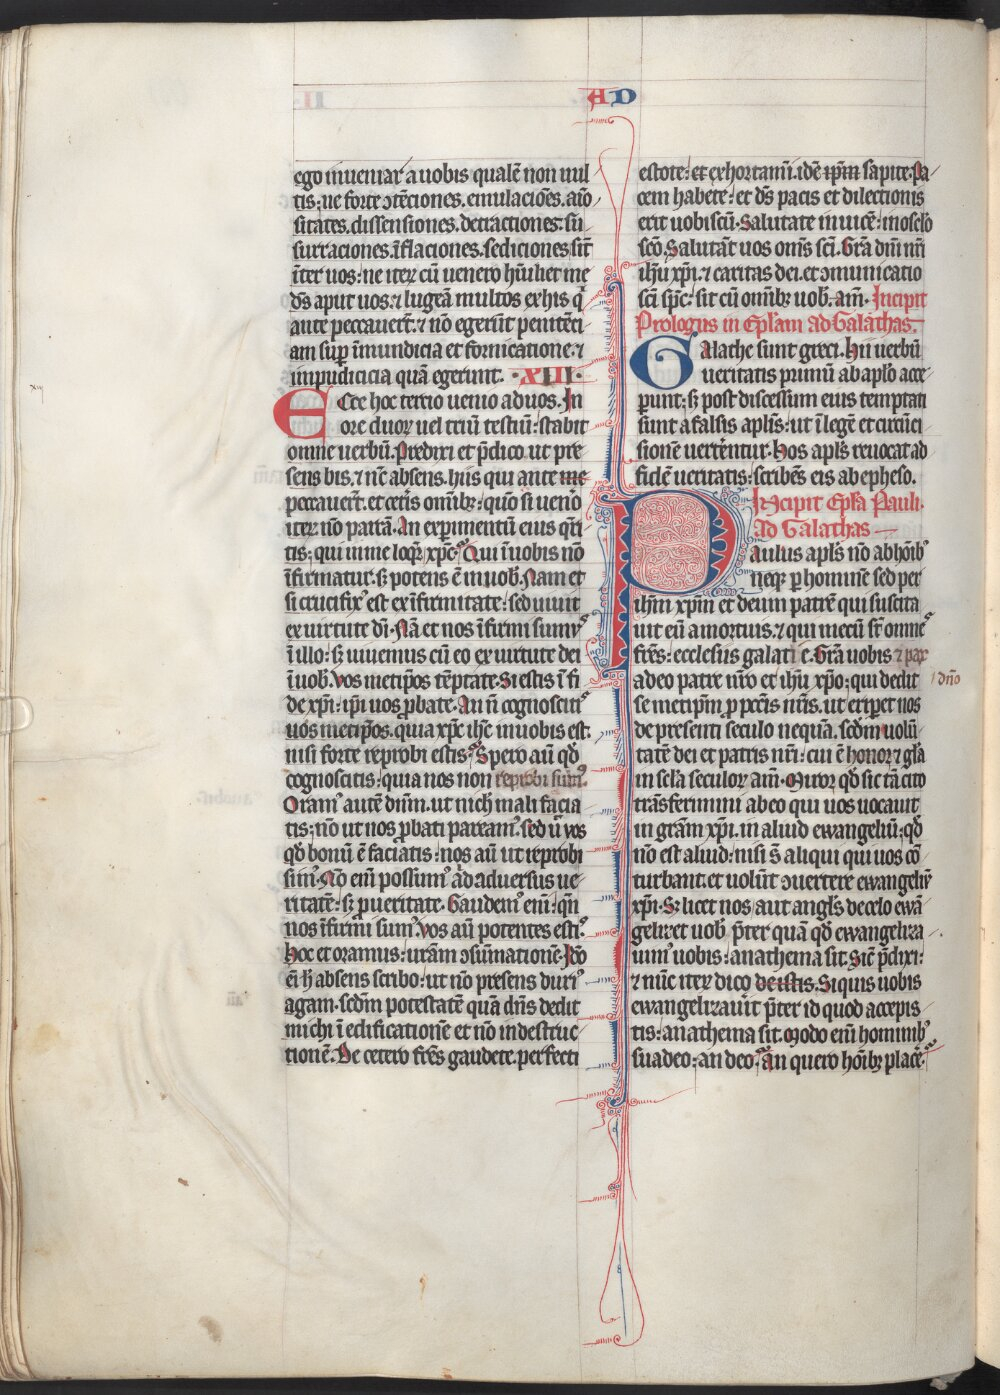 AD
ego inueniar a uobis qualē non uul
tis: ne forte ɔtēciones. emulacioēs. aīo
sitates. dissensiones. detractiones. su
surraciones. īflaciones. sediciones sīt
īter uos: ne iterꝫ cū uenero hūiliet me
dꝰ aput uos. ⁊ lugeā multos ex his q̄
ante peccauerūt. ⁊ nō egerūt penitēci
am suꝑ īmundicia et fornicatione. ⁊
impudicicia quā egerunt. XIII.
Ecce hoc tercio uenio ad uos. In
ore duoꝝ uel triū testiū: stabit
omne uerbū. Predixi et p̄dico. ut pre
sens bis. ⁊ nūc absens. hiis qui ante me
peccauerūt. et ceteris omībꝫ: quō si uenō
iterꝫ nō parcā. An experimentū eius q̄ri
tis: qui in me loqꝝ xp̄c. Qui ī uobis nō
īfirmatur. sꝫ potens ē in uob̄. Nam et
si crucifixꝰ est ex īfirmitate: sed uiuit
ex uirtute dī. Nā et nos īfirmi sumꝰ
ī illo: sꝫ uiuemus cū eo ex uirtute dei
ī uob̄. Vos metip̄os tēptate. Si estis ī fi
de xp̄i: ip̄i uos ꝓbate. An n̄ cognosciti
uos metip̄os. quia xp̄c ih̄c in uobis est.
nisi forte reprobi estis. Spero aūt qd̄
cognoscitis: quia nos non reprobi sumꝰ.
Oramꝰ autē dn̄m. ut nich̄ mali facia
tis: nō ut nos ꝓbati pareamꝰ. sed ū uos
qd̄ bonū ē faciatis: nos aūt ut reprobi
simꝰ. Nō enī possumꝰ ad aduersus ue
ritatē: sꝫ ꝓ ueritate. Gaudemꝰ enī: qn̄
nos īfirmi sumꝰ. Vos aūt potentes esti.
hoc et oramus: ur̄am ɔsūmationē. Ido
eī h̄ absens scribo: ut nō presens duriꝰ
agam. scdm̄ potestatē quā dn̄s dedit
michi ī edificationē et nō in destruc
tionē. De cetero frēs gaudete. perfecti
estote: et exhortamī. idē ip̄m sapite. pa
cem habete: et dꝰ pacis et dilectionis
erit uobiscū. Salutate inuicē: in osclo
scō. Salutāt uos om̄s scī. Gr̄a dn̄i nr̄i
ih̄u xp̄i. ⁊ caritas dei. et ɔmunicatio
scī sp̄c: sit cū omībꝫ uob̄. am̄. Incipit
Prologus in Epl̄am ad Galathas.
Galathe sunt greci. Hii uerbū
ueritatis primū ab ap̄lo acce
perunt: sꝫ post discessum eius temptati
sunt a falsis ap̄lis: ut ī legē et circūci
sionē uerterentur. Hos ap̄ls reuocat ad
fidē ueritatis: scribēs eis ab epheso.
Incipit Epl̄a Pauli.
ad Galathas
Paulus ap̄ls nō ab hōībꝰ
neqꝫ ꝑ hominē sed per
ih̄m xp̄m et deum patrē qui suscita
uit eū a mortuis. ⁊ qui mecū sūt omnes
frēs: ecclesiis galatie. Gr̄a uobis ⁊ pax
a deo patre nr̄o et ih̄u xp̄o: qui dedit dn̄o
se metip̄m ꝓ pccīs nr̄is. ut eriꝑet nos
de presenti seculo nequā. scdm̄ uolū
tatē dei et patris nr̄i: cui ē honor ⁊ gl̄a
in scl̄a seculoꝝ am̄. Miror qd̄ sic tā cito
trāsferimini ab eo qui uos uocauit
in gr̄am xp̄i. in aliud ewangeliū: qd̄
nō est aliud: nisi s̄ aliqui qui uos cō
turbant. et uolūt ɔuertere ewangeliū
xp̄i. Sꝫ licet nos aut angl̄s de celo ewā
gelizet uob̄ p̄ter quā qd̄ ewangeliza
uimꝰ uobis: anathema sit. Sic̄ p̄dixi:
⁊ nūc iterꝫ dico de istis. Si quis uobis
ewangelizauīt p̄ter id quod accepis
tis: anathema sit. Modo enī hominibꝰ
suadeo: an deo. An quero hōībꝫ placē.